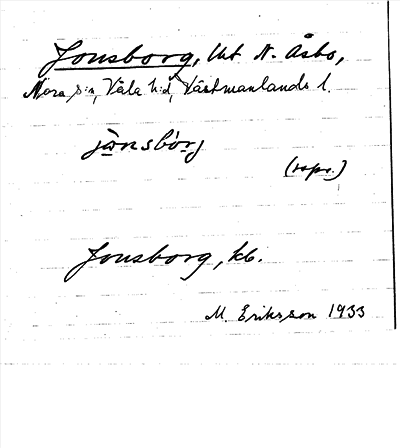 Jonsborg, lht N. Åsbo,
Nora s:n, Våla h:d, Västmanlands l.
jònsbòrj
(uppr.)
Jonsborg, kb.
M. Eriksson 1933